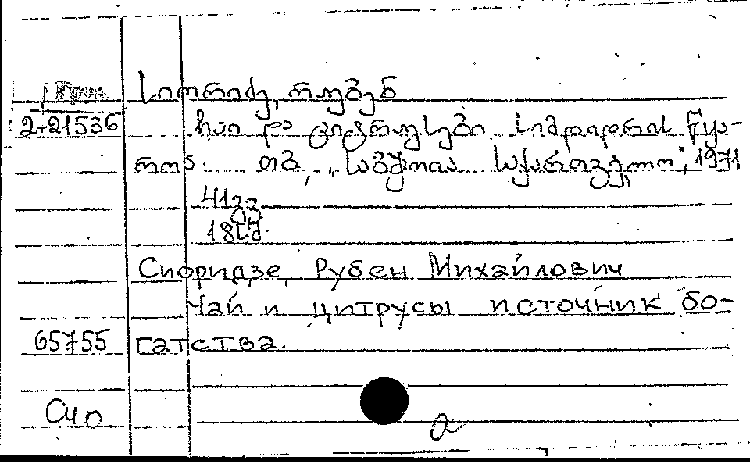 სიორიძე, რუბენ
2-21536 ჩაი და ციტრუსები სიმდიდრის წყა-
რო. თბ., „საბჭოთა საქართველო", 1971
41გვ.
18კ.
Сиоридзе, Рубен Михайлович
Чай и цитрусы источник бо-
65755 гатства.